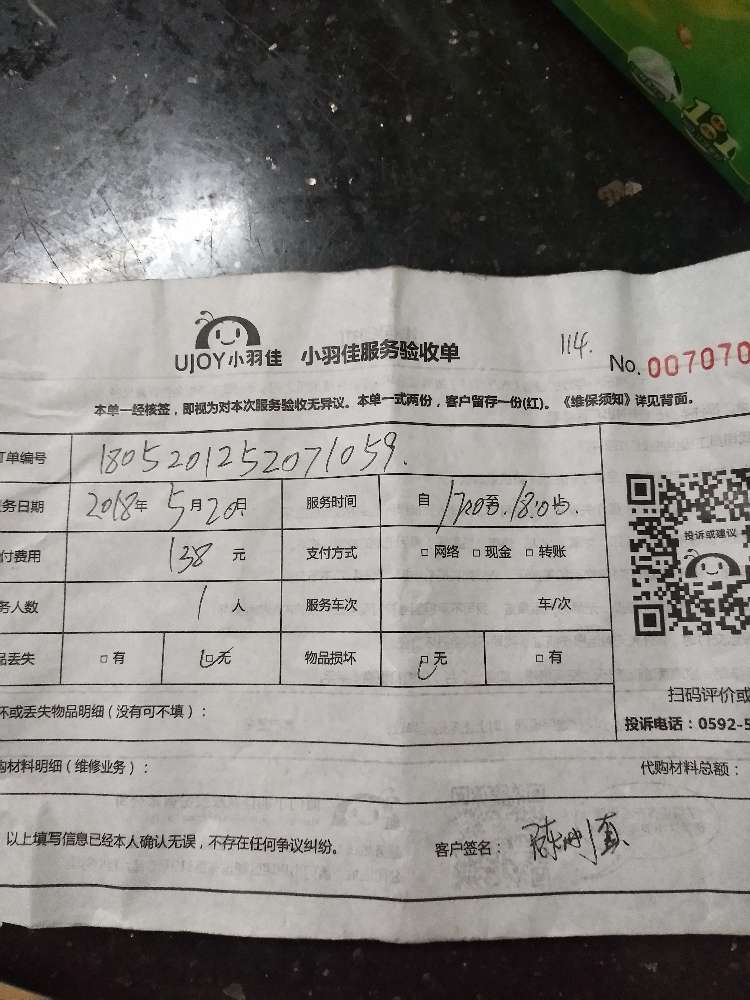 181
UJOY小羽佳 小羽佳服务验收单 114. No. 007070
本单一经核签，即视为对本次服务验收无异议。本单一式两份，客户留存一份(红)。《维保须知》详见背面。
订单编号 1805201252071059.
务日期 2018年5月20日 服务时间 自17:00至18:0止.
付费用 138元 支付方式 □ 网络 □ 现金 □ 转账
务人数 1人 服务车次 车/次
品丢失 □ 有 □ 无 物品损坏 □ 无 □ 有
投诉或建议
扫码评价或
坏或丢失物品明细（没有可不填）：
投诉电话：0592-5
购材料明细（维修业务）： 代购材料总额：
以上填写信息已经本人确认无误，不存在任何争议纠纷。 客户签名：陈